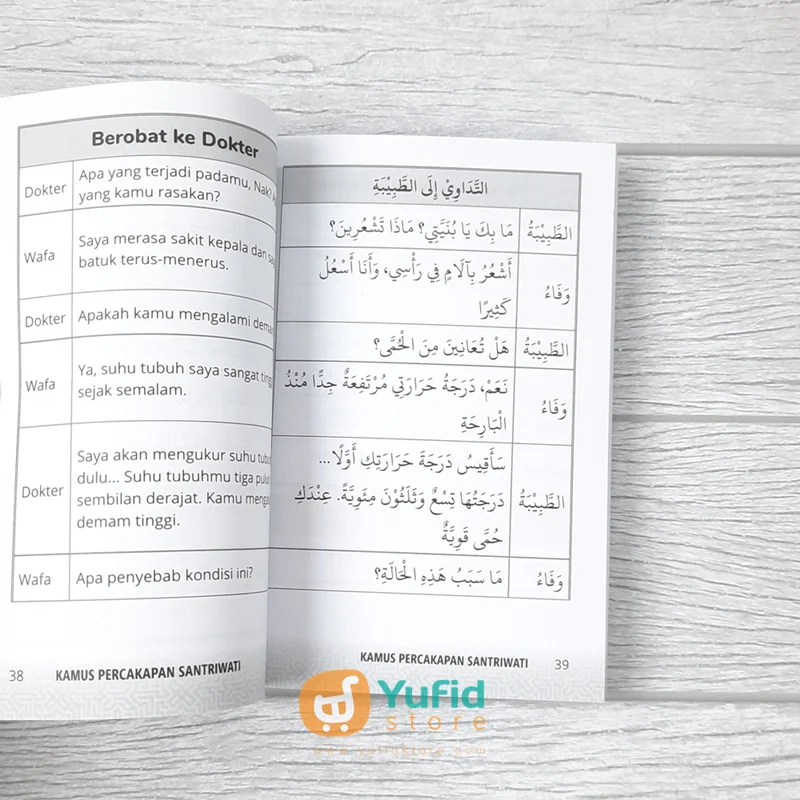 Berobat ke Dokter
Dokter
Apa yang terjadi padamu, Nak?
yang kamu rasakan?
Wafa
Saya merasa sakit kepala dan
batuk terus-menerus.
Dokter
Apakah kamu mengalami
Wafa
Ya, suhu tubuh saya sangat
sejak semalam.
Dokter
Saya akan mengukur suhu
dulu... Suhu tubuhmu tiga
sembilan derajat. Kamu
demam tinggi.
Wafa
Apa penyebab kondisi ini?
38
KAMUS PERCAKAPAN SANTRIWATI
التَّدَاوِيْ إِلَى الطَّبِيْبَةِ
الطَّبِيْبَةُ
مَا بِكَ يَا بُنَيَّتِي؟ مَاذَا تَشْعُرِينَ؟
وَفَاءُ
أَشْعُرُ بِآلَامٍ فِي رَأْسِي، وَأَنَا أَسْعُلُ
كَثِيْرًا
الطَّبِيْبَةُ
هَلْ تُعَانِينَ مِنَ الْحُمَّى؟
وَفَاءُ
نَعَمْ، دَرَجَةُ حَرَارَتِي مُرْتَفِعَةٌ جِدًّا مُنْذُ
الْبَارِحَةِ
الطَّبِيْبَةُ
سَأَقِيسُ دَرَجَةَ حَرَارَتِكِ أَوَّلًا...
دَرَجَتُهَا تِسْعٌ وَثَلَثُوْنَ مِئَوِيَّةً. عِنْدَكِ
حُمَّى قَوِيَّةٌ
وَفَاءُ
مَا سَبَبُ هَذِهِ الْحَالَةِ؟
KAMUS PERCAKAPAN SANTRIWATI
39
Yufid
store
www.yufidstore.com